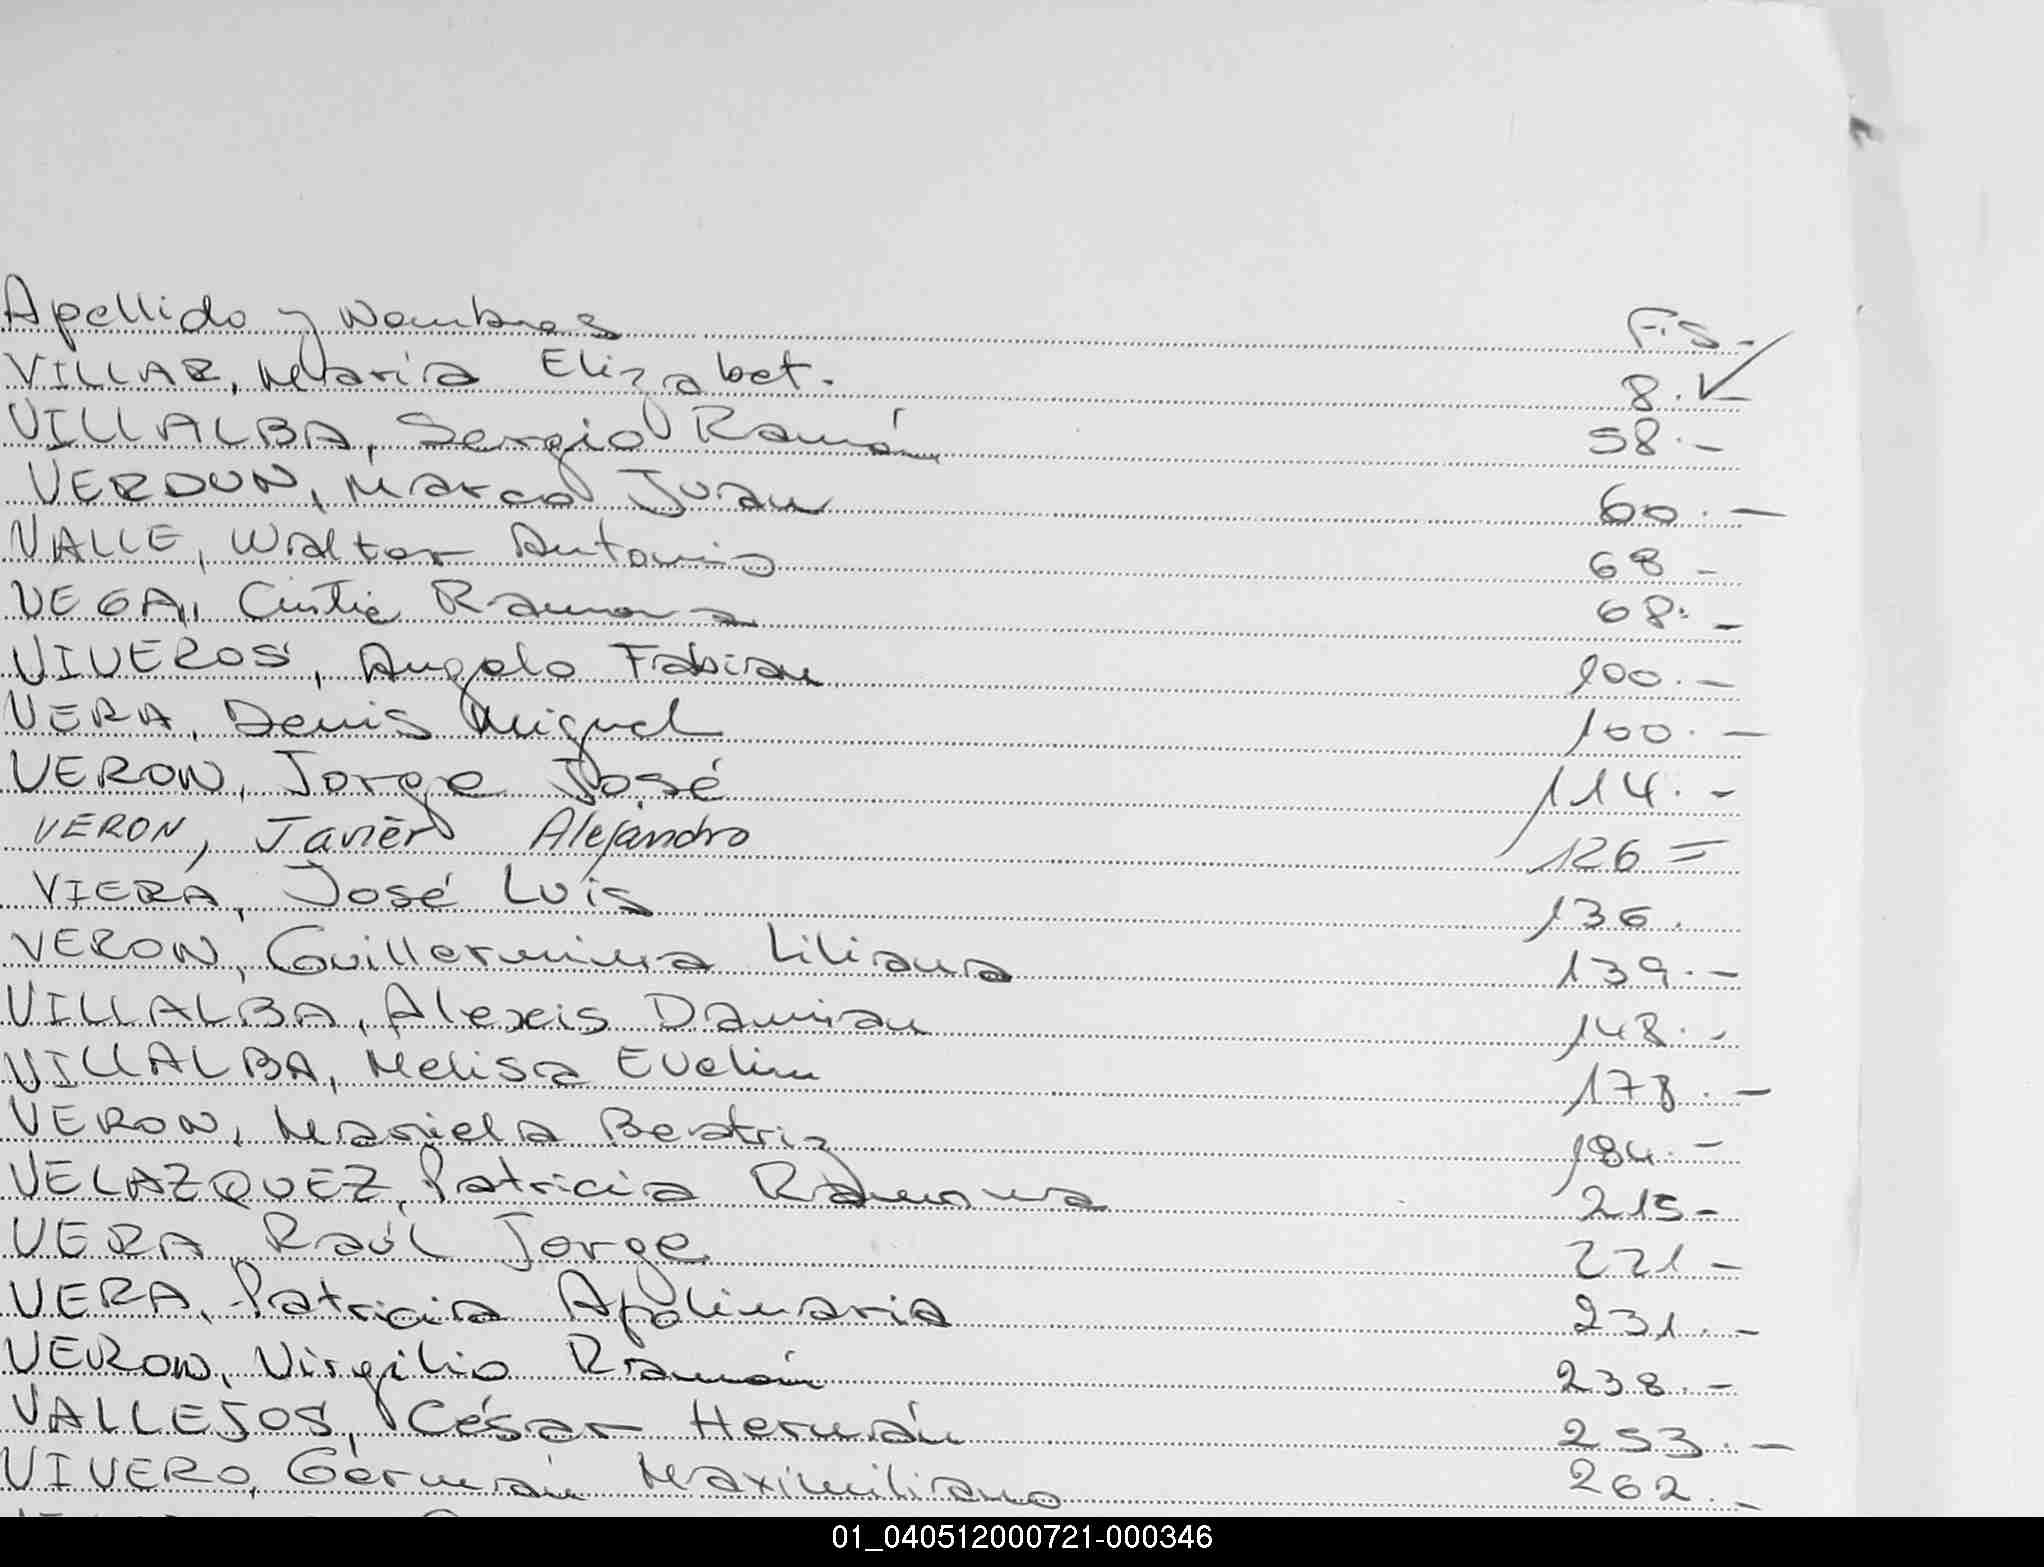 Apellido y Nombres Fs -
VILLAR, María Elizabet. 8.-
VILLALBA, Sergio Ramón 58.-
VERDUN, Marco Juan 60.-
VALLE, Walter Antonio 68 -
VEGA, Cintia Ramona 68.-
VIVEROS, Angelo Fabian 100.-
VERA, Denis Miguel 100.-
VERON, Jorge José 114.-
VERON, Javier Alejandro 126 =
VIERA, José Luis 136.
VERON, Guillermina Liliana 139.-
VILLALBA, Alexis Damian 148.-
VILLALBA, Melisa Evelin 178.-
VERON, Mariela Beatriz 184.-
VELAZQUEZ, Patricia Ramona 215-
VERA Raúl Jorge 221-
VERA, Patricia Apolinaria 231.-
VERON, Virgilio Ramón 238.-
VALLEJOS, César Hernán 253.-
VIVERO, Germán Maximiliano 262.-
01_040512000721-000346